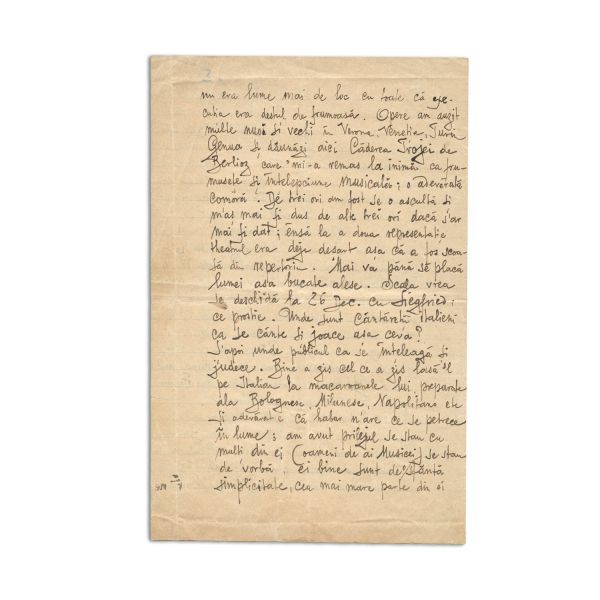 3
nu era lume mai de loc cu toate că exe-
cuția era destul de frumoasă. Opere am auzit
multe nuoă și vechi în Verona, Veneția, Turin
Genua și dăunăzi aici Căderea Trojei de
Berlioz care mi-a remas la inimă ca fru-
musețe și înțelepciune musicală; o adevărată
comoră. De trei ori am fost se o ascultă și
m'aș mai fi dus de alte trei ori dacă s'ar
mai fi dat; ensă la a doua representație
theatrul era deja desart așa că a fos scoa-
să din repertoriu. Mai va până să placă
lumei așa bucate alese. Scala vrea
se deschidă la 26 Dec. cu Siegfried;
ce prostie. Unde sunt cântăreții italieni
ca se cânte și joace așa ceva?
S'apoi unde publicul ca se înțeleagă și
judece. Bine a zis cel ce a zis lasă'l
pe Italian la macaroanele lui preparate
ala Bolognese, Milanese, Napolitano etc
și adevărat e că habar n'are ce se petrece
în lume; am avut prilejul se stau cu
multi din ei (oameni de ai Musicei) se stau
de vorbă, ei bine sunt de o sfântă
simplicitate, cea mai mare parte din ei